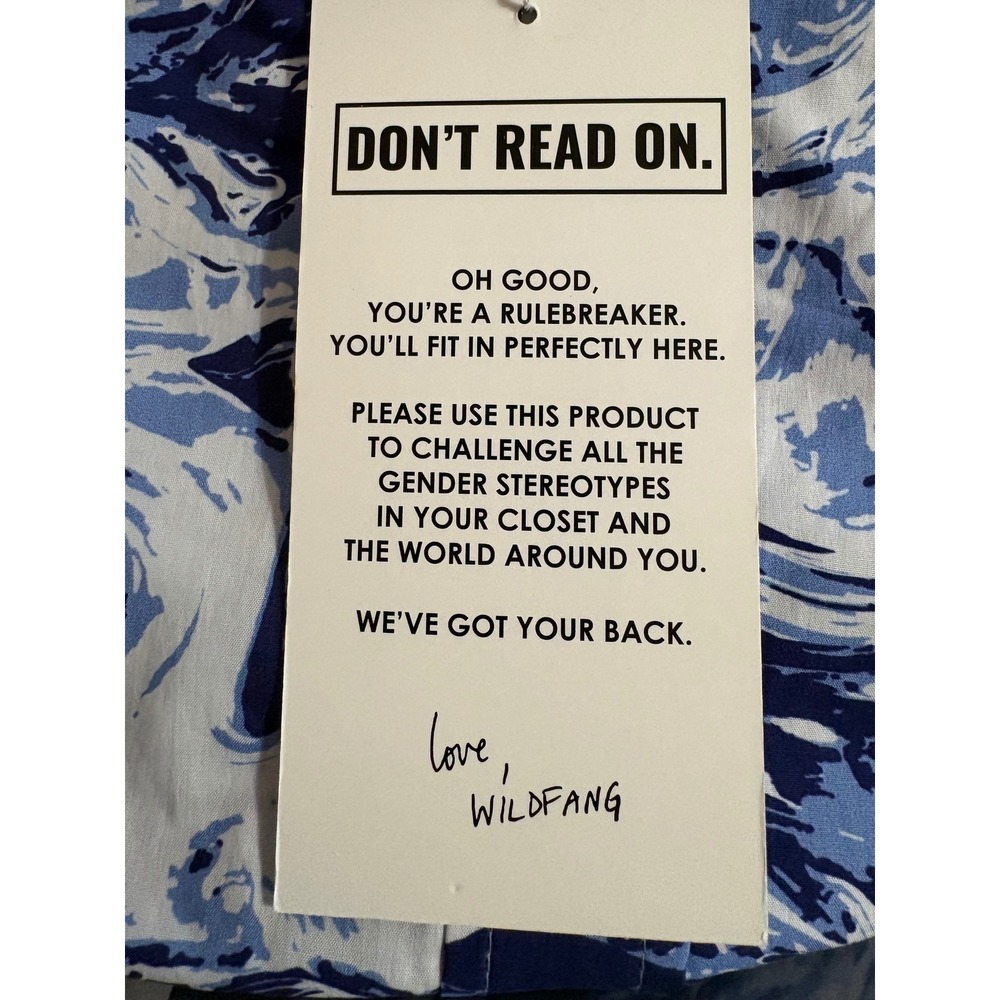 DON'T READ ON.
OH GOOD,
YOU'RE A RULEBREAKER.
YOU'LL FIT IN PERFECTLY HERE.
PLEASE USE THIS PRODUCT
TO CHALLENGE ALL THE
GENDER STEREOTYPES
IN YOUR CLOSET AND
THE WORLD AROUND YOU.
WE'VE GOT YOUR BACK.
love,
WILDFANG